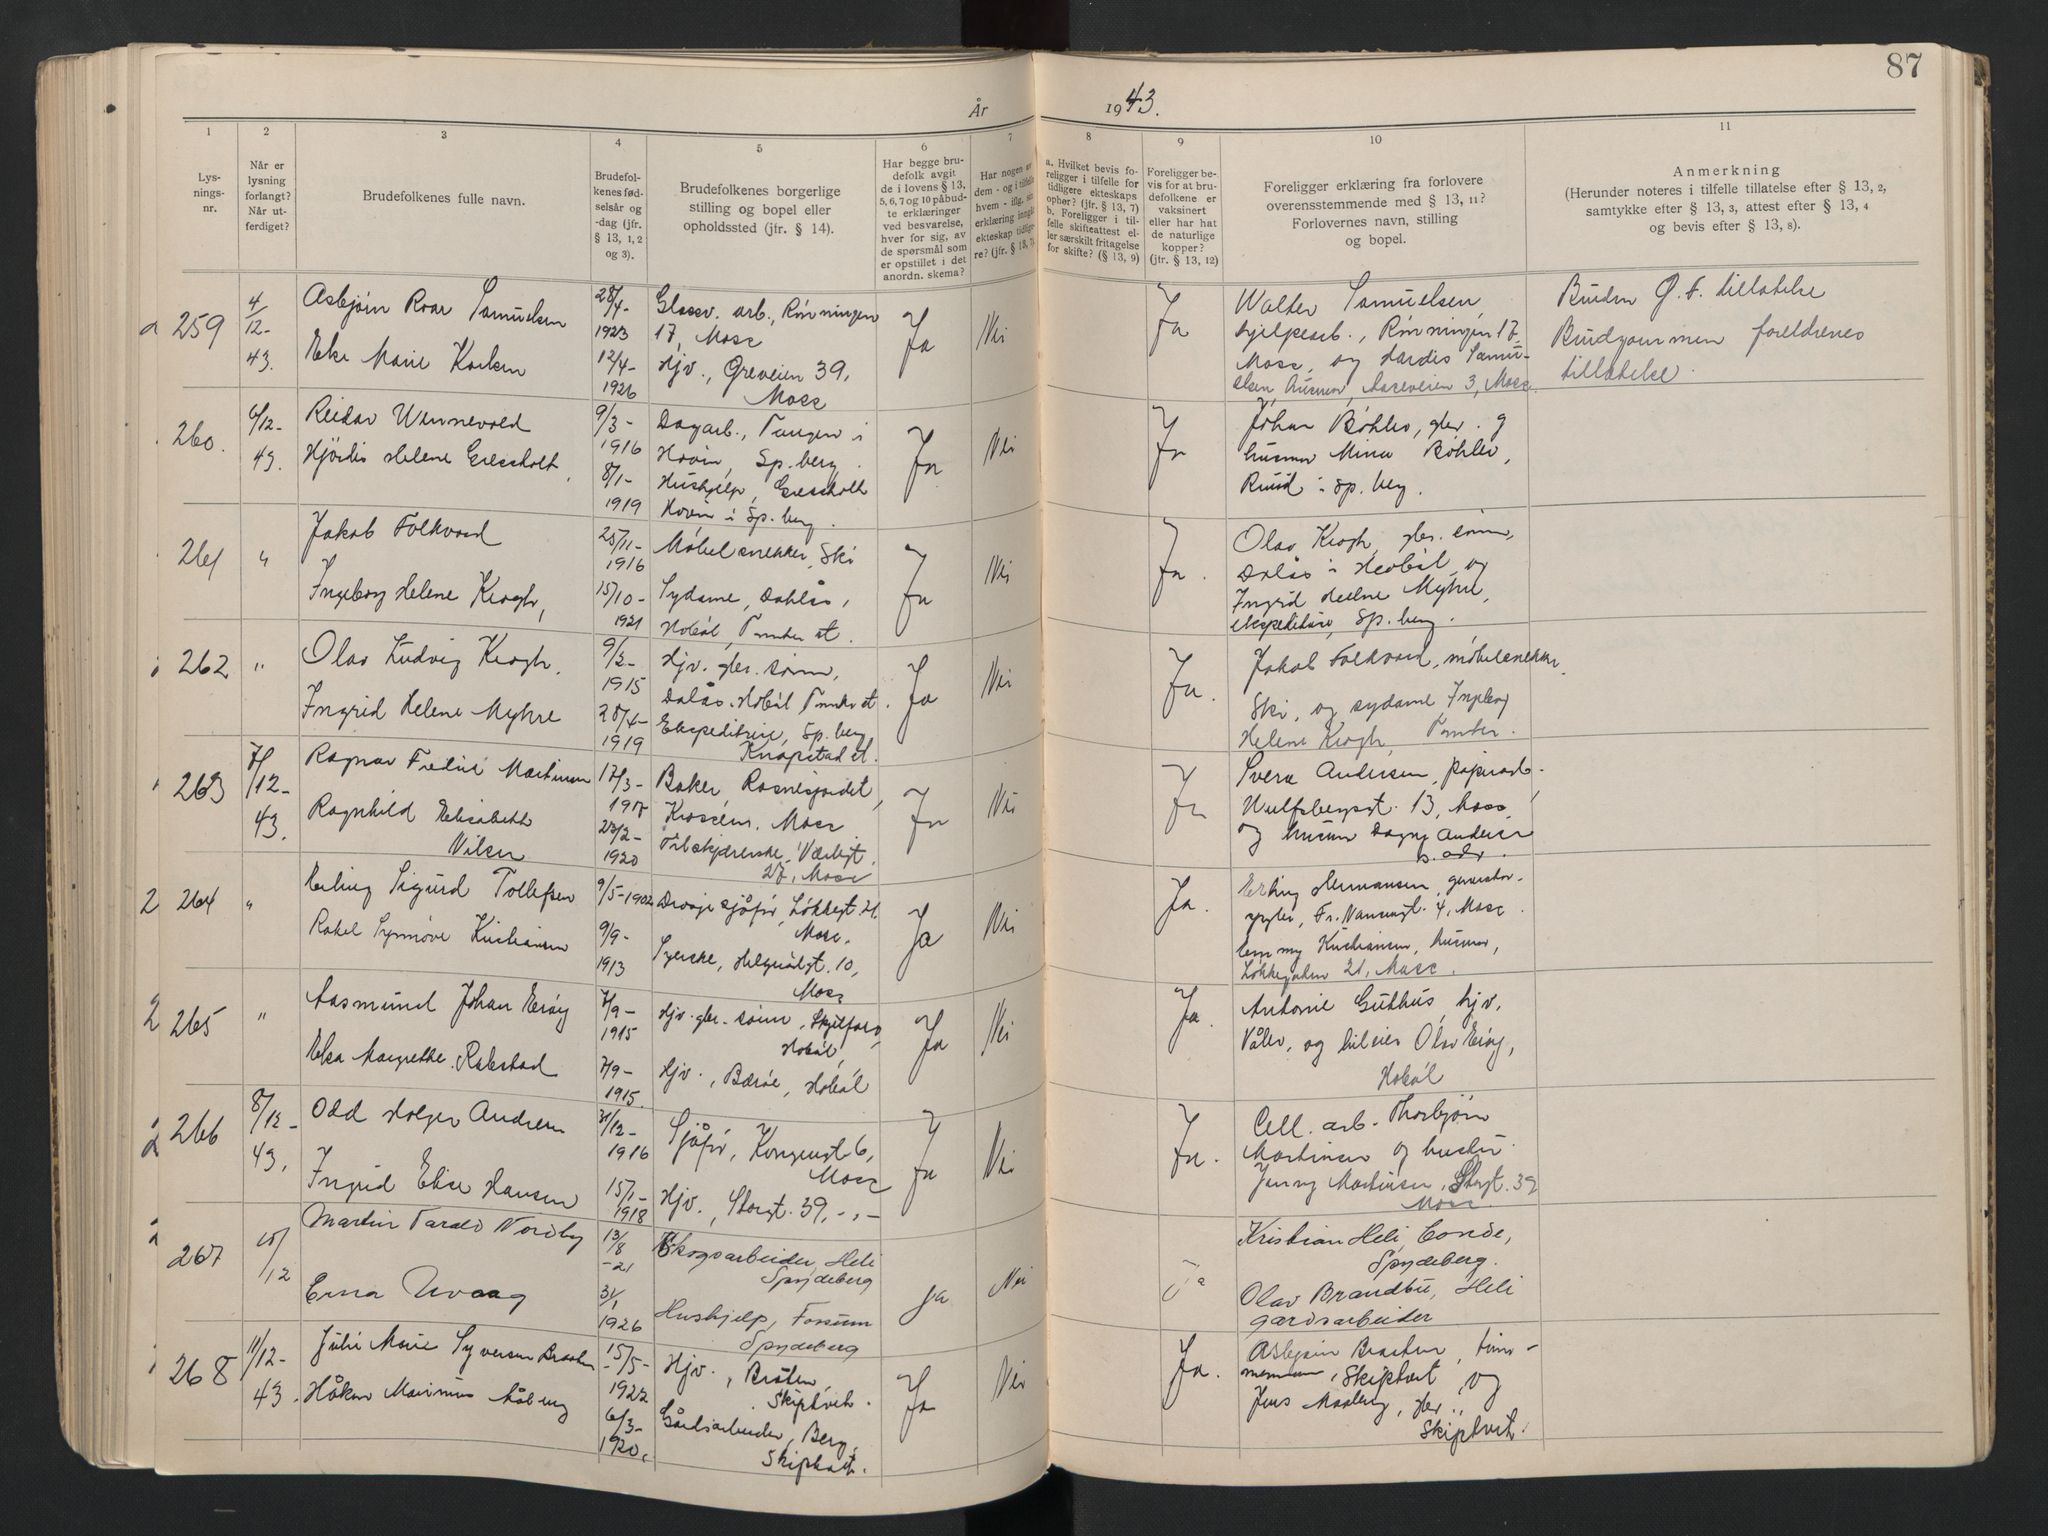 87
År 1943.
1
2
3
4
5
6
7
8
9
10
11
Lys-
nings-
nr.
Når er
lysning
forlangt?
Når ut-
ferdiget?
Brudefolkenes fulle navn.
Brudefol-
kenes fød-
selsår og
-dag (jfr.
§ 13, 1, 2
og 3).
Brudefolkenes borgerlige
stilling og bopel eller
opholdssted (jfr. § 14).
Har begge bru-
defolk avgit
de i lovens § 13,
5, 6, 7 og 10 påbud-
te erklæringer
ved besvarelse,
hver for sig, av
de spørsmål som
er opstillet i det
anordn. skema?
Har nogen av
dem - og i tilfelle
hvem - iflg. sin
erklæring inngått
ekteskap tidlige-
re? (jfr. § 13, 7).
a. Hvilket bevis fo-
religger i tilfelle for
tidligere ekteskaps
ophør? (jfr. § 13, 7)
b. Foreligger i til-
felle skifteattest el-
ler særskilt fritagelse
for skifte? (§ 13, 9)
Foreligger be-
vis for at bru-
defolkene er
vaksinert
eller har hat
de naturlige
kopper?
(jfr. § 13, 12)
Foreligger erklæring fra forlovere
overensstemmende med § 13, 11?
Forlovernes navn, stilling
og bopel.
Anmerkning
(Herunder noteres i tilfelle tillatelse efter § 13, 2,
samtykke efter § 13, 3, attest efter § 13, 4
og bevis efter § 13, 8).
259
4/
12-
43.
Asbjørn Roar Samuelsen
Else Marie Karlsen
28/4-
1923
12/4-
1926
Glassv. arb., Rønningen
17, Moss
Hjv., Greveien 39,
Moss
Ja
Nei
Ja
Walter Samuelsen
hjelpearb., Rønningen 17,
Moss, og Hardis Samu-
elsen, husmor, Aaseveien 3, Moss.
Bruden Ø. F. tillatelse
Brudgommen foreldrenes
tillatelse.
260.
6/12-
43.
Reidar Vinnevold
Hjördis Helene Gresholt.
9/3-
1916
8/1-
1919
Dagarb., Tangen i
Hovin, Sp.berg.
Hushjelp, Gresholt
Hovin i Sp. berg.
Ja
Nei
Ja
Johan Bøhler, gbr. og
husmor Mina Bøhler,
Ruud i Sp. berg.
261
"
Jakob Folkvord
Ingeborg Helene Krogh,
25/11-
1916
15/10-
1921
Møbelsnekker, Ski
Sydame, Dahlås,
Hobøl, Tomter st.
Ja
Nei
Ja.
Olav Krogh, gbr. sønn,
Dalås i Hobøl, og
Ingrid Helene Myhre,
ekspeditrise, Sp. berg.
262
"
Olav Ludvig Krogh.
Ingrid Helene Myhre
9/2-
1915
28/4-
1919
Hjv. gbr. sønn,
Dalås. Hobøl Tomter st.
Ekspeditrise, Sp. berg
Knapstad st.
Ja
Nei
Ja.
Jakob Folkvord, møbelsnekker
Ski, og sydame Ingeborg
Helene Krogh, Tomter.
263
7/
12-
43.
Ragnar Fredrik Martinsen
Ragnhild Elisabeth
Nilsen
17/3-
1917
23/2-
1920
Baker, Rosnesjordet,
Krossern. Moss
Tilskjærerske, Værlegt.
27, Moss
Ja
Nei
Ja
Sverre Andersen, papirarb.
Wulfsbergsgt. 13, Moss,
og husmor Dagny Andersen
s. adr.
264
"
Erling Sigurd Tollefsen
Rakel Synnøve Kristiansen
9/5-1902
9/9-
1913
Drosjesjåfør, Løkkegt. 21.
Moss.
Syerske, Helgerødgt. 10,
Moss
Ja
Nei
Ja.
Erling Hermansen, generator-
, Fr. Nansensgt. 4, Moss.
Kristiansen, husmor,
Løkkegaten 21, Moss.
265
"
Aasmund Johan Erøy
Elsa Margrethe Rakstad
7/9-
1915
7/9-
1915.
Hjv. gbr. sønn, Skjelfoss,
Hobøl,
Hjv., Bærøe, Hobøl
Ja
Nei
Ja.
Antonie Guthus, hjv,
Våler, og bileier Olav Erøy,
Hobøl
266
8/12-
43.
Odd Holger Andresen
Ingrid Elise Hansen
31/12-
1916
15/1-
1918
Sjåfør, Kongensgt. 6,
Moss
Hjv., Storgt. 39, -,-
Ja
Nei
Ja.
Cell. arb. Thorbjørn
Martinsen og hustru
Jenny Martinsen, Storgt. 39
Moss.
267
10/
12
Martin Tarald Nordby
Erna Uvaag
13/8
-21
31/1
1926
Skogsarbeider, Heli
Spydeberg
Hushjelp, Fossum
Spydeberg
ja
Nei
Ja
Kristian Heli, bonde,
Spydeberg.
Olav Brandbu, Heli
gardsarbeider
268
11/12-
43.
Julie Marie Syversen Braaten
Håkon Marinius Aaberg
15/5-
1922
6/3-
1920.
Hjv., Bråten,
Skiptvet.
Gårdsarbeider, Berg,
Skiptvet.
Ja
Nei
Ja.
Asbjørn Braaten, tøm-
mermann, Skiptvet, og
Jens Maaberg, gbr.,
Skiptvet.